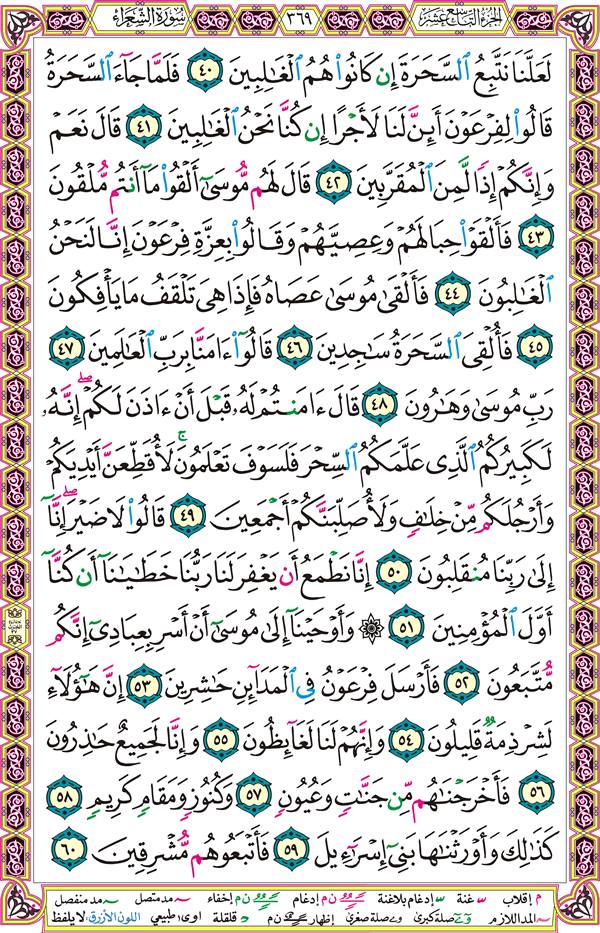 سورة الشعراء ٣٦٩ الجزء التاسع عشر
لَعَلَّنَا نَتَّبِعُ ٱلسَّحَرَةَ إِن كَانُوا۟ هُمُ ٱلْغَـٰلِبِينَ ٤٠ فَلَمَّا جَآءَ ٱلسَّحَرَةُ
قَالُوا۟ لِفِرْعَوْنَ أَئِنَّ لَنَا لَأَجْرًا إِن كُنَّا نَحْنُ ٱلْغَـٰلِبِينَ ٤١ قَالَ نَعَمْ
وَإِنَّكُمْ إِذًا لَّمِنَ ٱلْمُقَرَّبِينَ ٤٢ قَالَ لَهُم مُّوسَىٰٓ أَلْقُوا۟ مَآ أَنتُم مُّلْقُونَ
٤٣ فَأَلْقَوْا۟ حِبَالَهُمْ وَعِصِيَّهُمْ وَقَالُوا۟ بِعِزَّةِ فِرْعَوْنَ إِنَّا لَنَحْنُ
ٱلْغَـٰلِبُونَ ٤٤ فَأَلْقَىٰ مُوسَىٰ عَصَاهُ فَإِذَا هِىَ تَلْقَفُ مَا يَأْفِكُونَ
٤٥ فَأُلْقِىَ ٱلسَّحَرَةُ سَـٰجِدِينَ ٤٦ قَالُوٓا۟ ءَامَنَّا بِرَبِّ ٱلْعَـٰلَمِينَ ٤٧
رَبِّ مُوسَىٰ وَهَـٰرُونَ ٤٨ قَالَ ءَامَنتُمْ لَهُۥ قَبْلَ أَنْ ءَاذَنَ لَكُمْ ۖ إِنَّهُۥ
لَكَبِيرُكُمُ ٱلَّذِى عَلَّمَكُمُ ٱلسِّحْرَ فَلَسَوْفَ تَعْلَمُونَ ۚ لَأُقَطِّعَنَّ أَيْدِيَكُمْ
وَأَرْجُلَكُم مِّنْ خِلَـٰفٍ وَلَأُصَلِّبَنَّكُمْ أَجْمَعِينَ ٤٩ قَالُوا۟ لَا ضَيْرَ ۖ إِنَّآ
إِلَىٰ رَبِّنَا مُنقَلِبُونَ ٥٠ إِنَّا نَطْمَعُ أَن يَغْفِرَ لَنَا رَبُّنَا خَطَـٰيَـٰنَآ أَن كُنَّآ
أَوَّلَ ٱلْمُؤْمِنِينَ ٥١ ۞ وَأَوْحَيْنَآ إِلَىٰ مُوسَىٰٓ أَنْ أَسْرِ بِعِبَادِىٓ إِنَّكُم
مُّتَّبَعُونَ ٥٢ فَأَرْسَلَ فِرْعَوْنُ فِى ٱلْمَدَآئِنِ حَـٰشِرِينَ ٥٣ إِنَّ هَـٰٓؤُلَآءِ
لَشِرْذِمَةٌ قَلِيلُونَ ٥٤ وَإِنَّهُمْ لَنَا لَغَآئِظُونَ ٥٥ وَإِنَّا لَجَمِيعٌ حَـٰذِرُونَ
٥٦ فَأَخْرَجْنَـٰهُم مِّن جَنَّـٰتٍ وَعُيُونٍ ٥٧ وَكُنُوزٍ وَمَقَامٍ كَرِيمٍ ٥٨
كَذَٰلِكَ وَأَوْرَثْنَـٰهَا بَنِىٓ إِسْرَٰٓءِيلَ ٥٩ فَأَتْبَعُوهُم مُّشْرِقِينَ ٦٠
م إقلاب س غنة س إدغام بلاغنة ن م إدغام ن م إخفاء مد متصل مد منفصل
المد اللازم صلة كبرى صلة صغرى إظهار ن م قلقلة اوى طبيعي اللون الأزرق: لا يلفظ